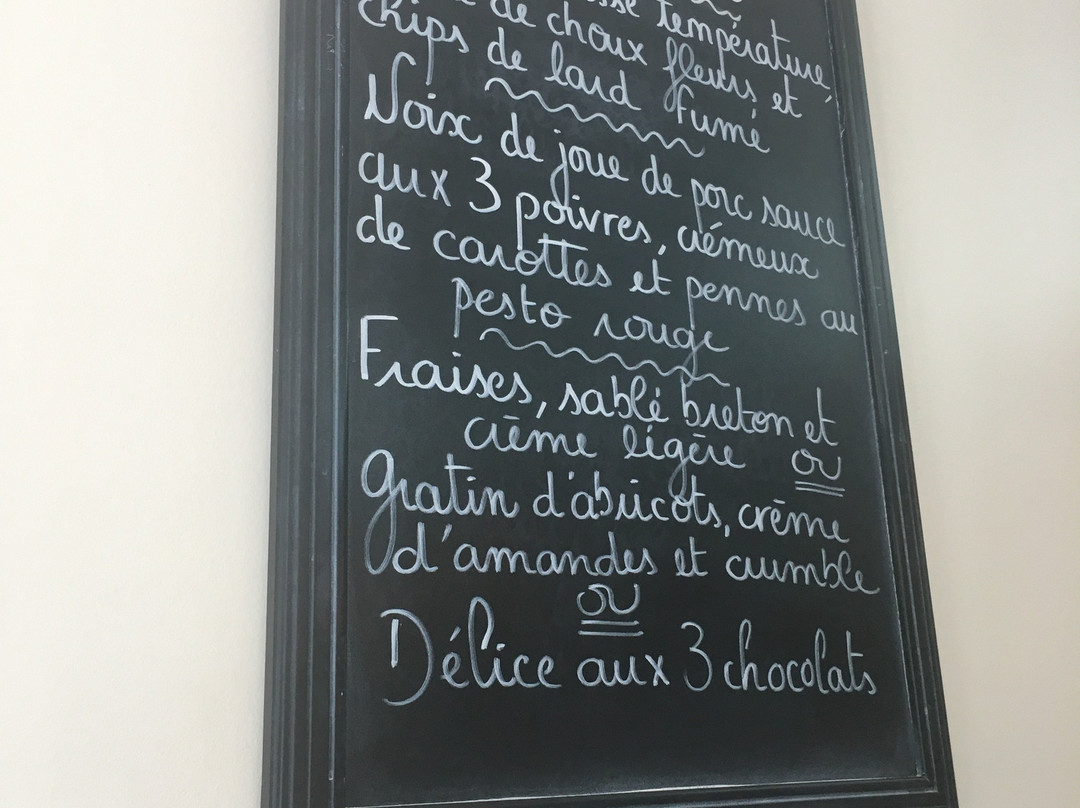 température,
de choux fleurs et
chips de lard fumé
Noix de joue de porc sauce
aux 3 poivres, crémeux
de carottes et pennes au
pesto rouge
Fraises, sablé breton et
crème légère ou
Gratin d'abricots, crème
d'amandes et crumble
ou
Délice aux 3 chocolats